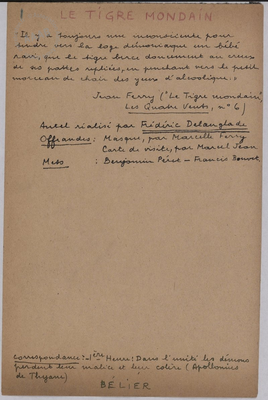 1
LE TIGRE MONDAIN
"Il y a toujours une inconsciente pour
tendre vers la loge démoniaque un bébé
ravi, que le tigre berce doucement au creux
de ses pattes repliées, en penchant vers le petit
morceau de chair des yeux d'alcoolique."
Jean Ferry ("Le Tigre mondain",
Les Quatre Vents, n° 6)
Autel réalisé par Frédéric Delanglade
Offrandes : Masque, par Marcelle Ferry
Carte de visite, par Marcel Jean
Mets : Benjamin Péret - Francis Bouvet.
correspondance : - 1ère Heure : Dans l'unité les démons
perdent leur malice et leur colère (Apollonius
de Thyane)
BÉLIER